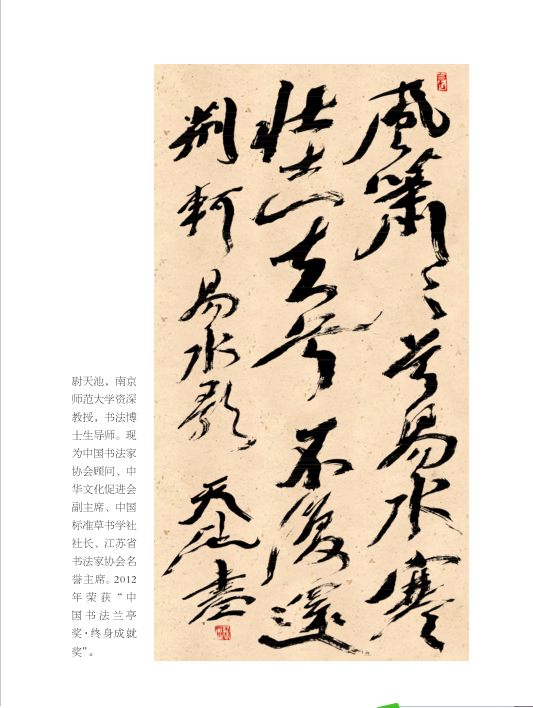 風蕭々兮易水寒
壯士去兮不復還
荆軻易水歌 天池書
尉天池，南京
师范大学资深
教授，书法博
士生导师。现
为中国书法家
协会顾问、中
华文化促进会
副主席、中国
标准草书学社
社长、江苏省
书法家协会名
誉主席。2012
年荣获“中
国书法兰亭
奖·终身成就
奖”。